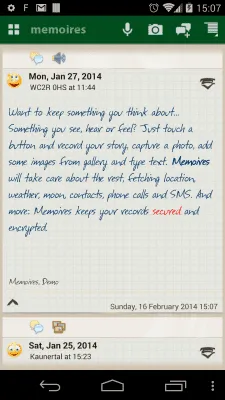 15:07
memoires
Mon, Jan 27, 2014
WC2R 0HS at 11:44
Want to keep something you think about...
Something you see, hear or feel? Just touch a
button and record your story, capture a photo, add
some images from gallery and type text. Memoires
will take care about the rest, fetching location,
weather, moon, contacts, phone calls and SMS. And
more: Memoires keeps your records secured and
encrypted.
Memoires, Demo
Sunday, 16 February 2014 15:07
Sat, Jan 25, 2014
Kaunertal at 15:23